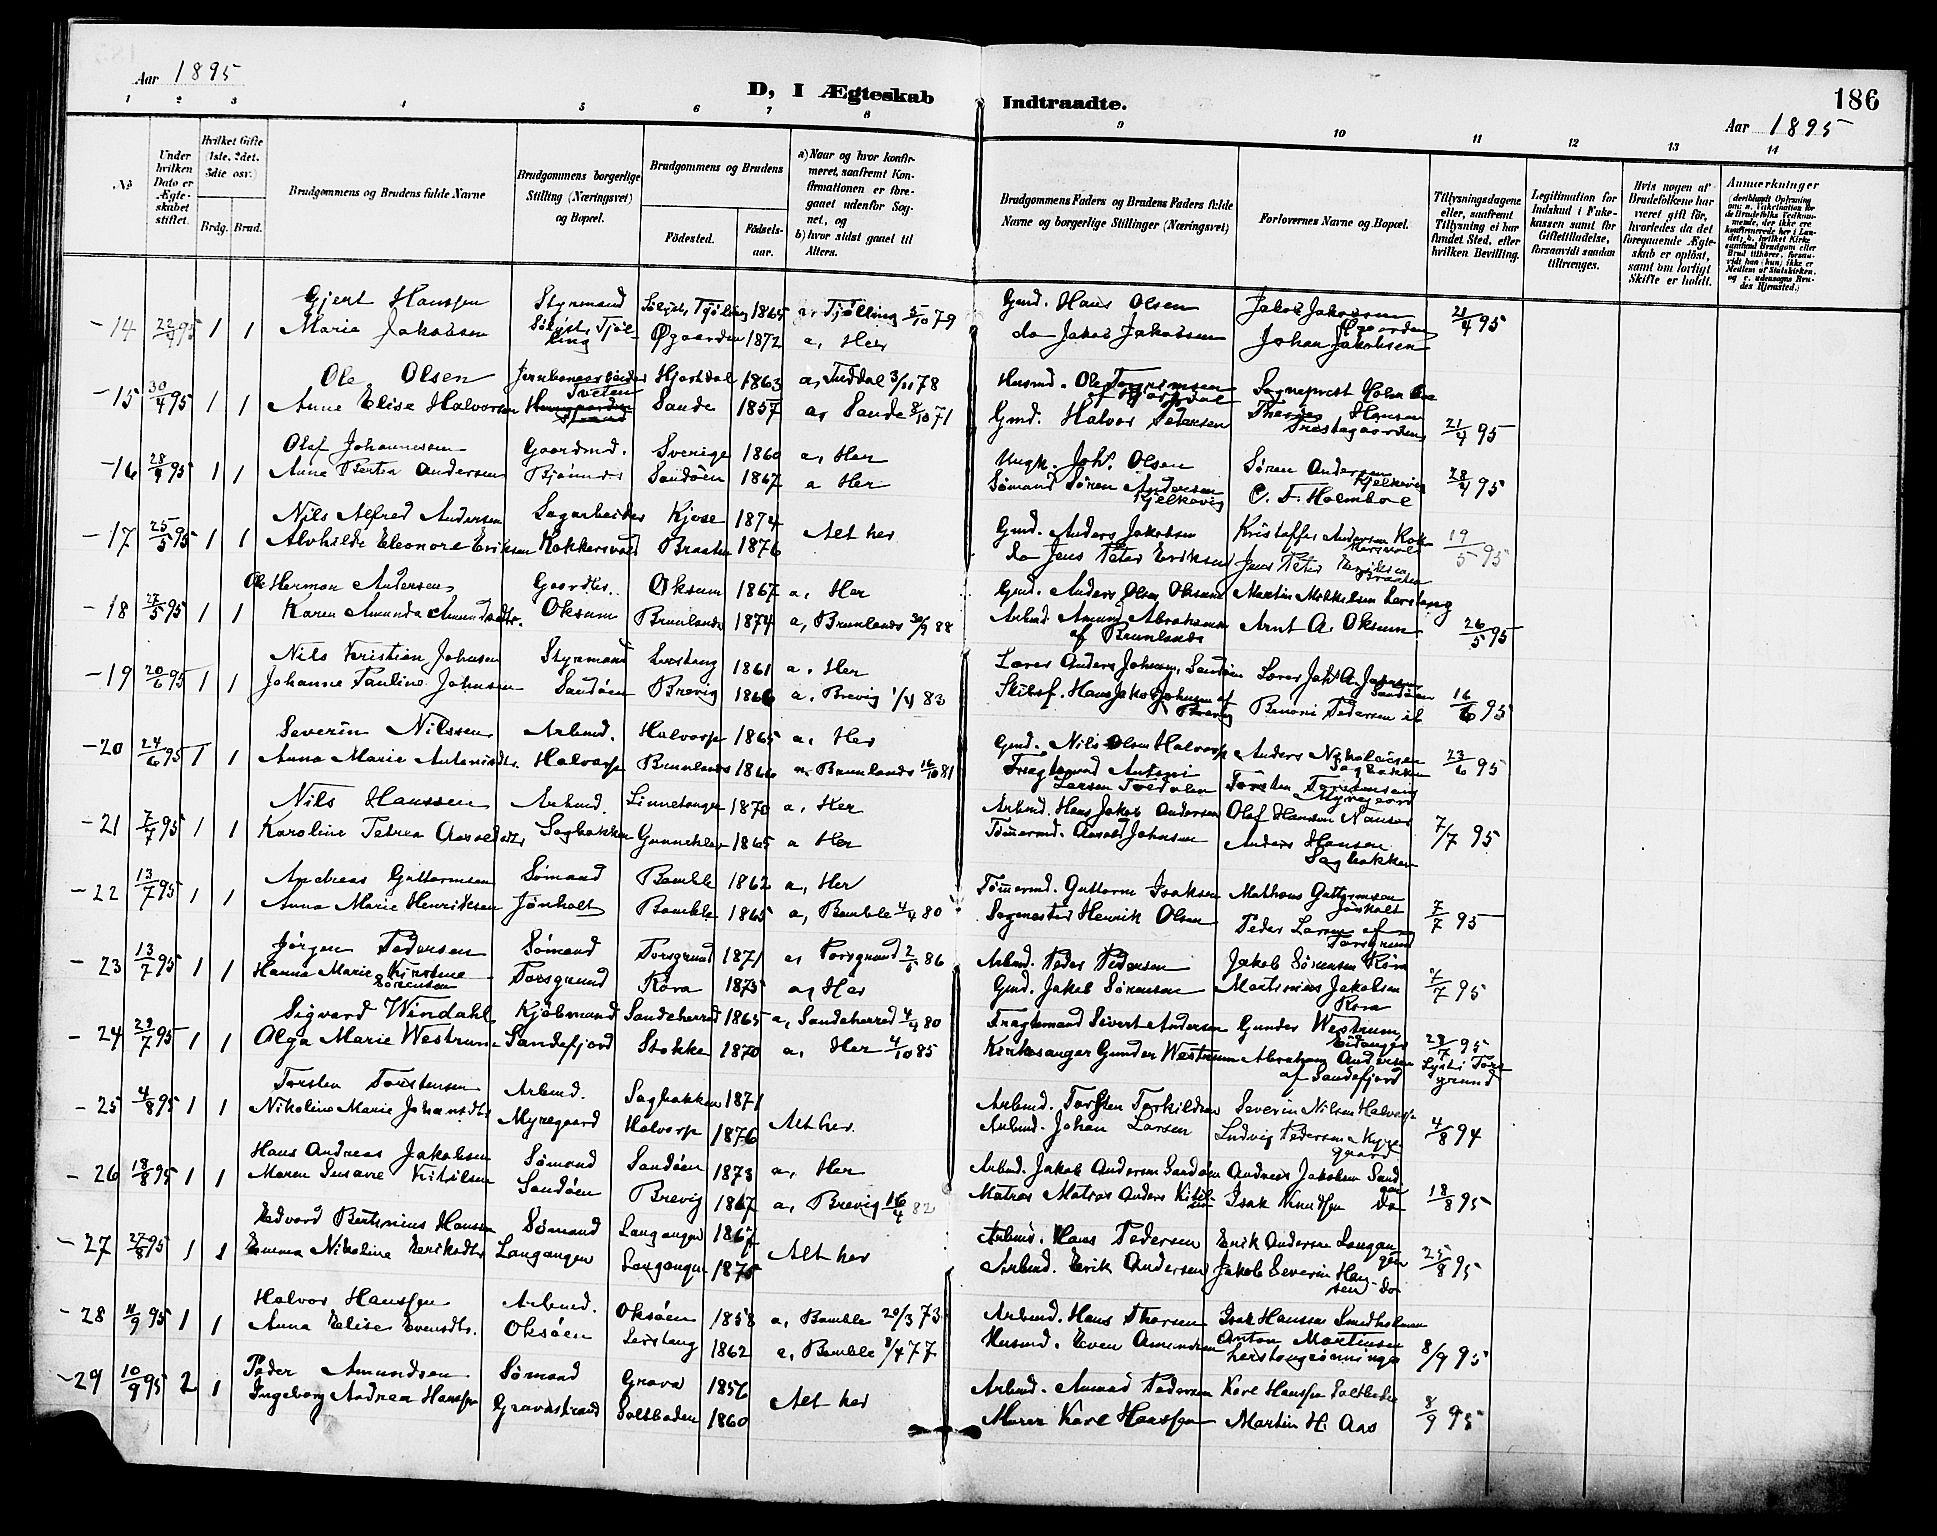 Aar 1895
D, I Ægteskab Indtraadte.
186
Aar 1895
1 2 3 4 5 6 7 8 9 10 11 12 13 14
No
Under hvilken Dato er Ægteskabet stiftet.
Hvilket Gifte (1ste, 2det, 3die osv.)
Brdg. Brud.
Brudgommens og Brudens fulde Navne
Brudgommens borgerlige Stilling (Næringsvei) og Bopæl.
Brudgommens og Brudens
Fødested. Fødselsaar.
a) Naar og hvor konfirmeret, saafremt Konfirmationen er foregaaet udenfor Sognet, og
b) hvor sidst gaaet til Alters.
Brudgommens Faders og Brudens Faders fulde Navne og borgerlige Stillinger (Næringsvei)
Forlovernes Navne og Bopæl.
Tillysningsdagene eller, saafremt Tillysning ei har fundet Sted, efter hvilken Bevilling.
Legitimation for Indskud i Enkekassen samt for Giftetilladelse, forsaavidt saadan tiltrænges.
Hvis nogen af Brudefolkene har været gift før, hvorledes da det foregaaende Ægteskab er opløst, samt om lovligt Skifte er holdt.
Anmærkninger
14 22/4 95 1 1 Gjert Hanssen Styrmand Tjølling 1865 a, Tjølling 5/10 79 Gmd. Hans Olsen Jakob Jakobsen Øgaarden 21/4 95
Marie Jakobsen Tjølling Øgaarden 1872 a, Her do Jakob Jakobsen Johan Jakobsen
15 30/4 95 1 1 Ole Olsen Jernbanearbeider Tveten Hjertdal 1863 a, Tuddal 3/11 78 Husmd. Ole af Hjertdal Sogneprest
Anne Elise Halvorsen Sande 1857 a, Sande 8/10 71 Gmd. Halvor Petersen Hansen 21/4 95
16 28/4 95 1 1 Olaf Johannessen Gaardmd. Sverige 1860 a, Her Ungk. Joh. Olsen Søren Andersen Kjelkevig 28/4 95
Anne Bertia Andersen Bjønnes Sandøen 1867 a Her Sømand Søren Andersen Kjelkevig C. F. Holmboe
17 25/5 95 1 1 Nils Alfred Andersen Sagarbeider Kjose 1874 Alt her Gmd. Anders Jakobsen Kristoffer Andersen Kokkersvold 19/5 95
Alvhilde Eleonore Eriksen Kokkersvold Braaten 1876 do Jens Peter Eriksen Jens Peter Eriksen Braaten
18 27/5 95 1 1 Ole Herman Andersen Gaardbr. Oksum 1867 a, Her Gmd. Anders Olsen Oksum Martin Mikkelsen Lerstang
Karen Amunda Amundsdtr. Oksum Brunlanes 1874 a, Brunlanes 30/9 88 Arbmd. Amund Abrahamsen af Brunlanes Arnt A. Oksum 26/5 95
19 20/6 95 1 1 Nils Kristian Johnsen Styrmand Lerstang 1861 a. Her Lærer Anders Johnsen, Sandøen Lærer Joh. A. Jensen Sandøen 16/6 95
Johanne Pauline Johnsen Sandøen Brevig 1866 a. Brevig 1/4 83 Skibsf. Hans Jakob Johnsen af Brevig Benoni Pedersen
20 24/6 95 1 1 Severin Nilssen Arbmd. Halvorsp 1865 a. Her Gmd. Nils Olsen Halvorsp Anders Nikolaisen Sagbakken 23/6 95
Anna Marie Antonisdtr. Halvorsp Brunlanes 1866 a. Brunlanes 16/10 81 Fragtemand Antoni Larsen Tvedalen Torsten Torstensen Myregaard
21 7/7 95 1 1 Nils Hanssen Arbmd. Linnetangen 1870 a, Her Arbmd. Hans Jakob Andersen Olaf Hansen 7/7 95
Karoline Petrea Aarolsdtr Sagbakken Gunneklev 1865 a Her Tømmermd. Aarold Johnsen Anders Hansen Sagbakken
22 13/7 95 1 1 Andreas Guttormsen Sømand Bamble 1862 a, Her Tømmermd. Guttorm Isaksen Mathæus Guttormsen Jønholt 7/7 95
Anna Marie Henriksen Jønholt Bamble 1865 a, Bamble 4/4 80 Sagmester Henrik Olsen Peder Larsen af Porsgrund
23 13/7 95 1 1 Jørgen Pedersen Sømand Porsgrund 1871 a, Porsgrund 2/5 86 Arbmd. Peder Pedersen Jakob Sørensen Røra
Hanna Marie Kirstine Sørensen Porsgrund Røra 1875 a, Her Gmd. Jakob Sørensen Martinius Jakobsen Røra 7/7 95
24 29/7 95 1 1 Sigvard Windahl Kjøbmand Sandeherred 1865 a, Sandeherred 4/4 80 Fragtemand Sivert Andersen Gunder Westrum Eidanger 28/7 95
Olga Marie Westrum Sandefjord Stokke 1870 a, Her 4/10 85 Kirkesanger Gunder Westrum Abraham Andersen af Sandefjord Lyst i Porsgrund
25 4/8 95 1 1 Torsten Torstensen Arbmd. Sagbakken 1871 Alt her Arbmd. Torsten Torkildsen Severin Nilsen Halvorsp 4/8 94
Nikoline Marie Johansdtr Myregaard Halvorsp 1876 Arbmd. Johan Larsen Ludvig Pedersen Myregaard
26 18/8 95 1 1 Hans Andreas Jakobsen Sømand Sandøen 1873 a, Her Arbmd. Jakob Andersen Sandøen Andreas Jakobsen Sandøen 18/8 95
Maren Susanne Kittilsen Sandøen Brevig 1867 a, Brevig 16/4 82 Matros Matros Anders Kittilsen Isak Knudsen do
27 27/8 95 1 1 Edvard Bertinius Hansen Sømand Langangen 1867 Alt her Arbmd. Hans Pedersen Erik Andersen Langangen 25/8 95
Emma Nikoline Eriksdtr Langangen Langangen 1875 Arbmd. Erik Andersen Jakob Severin Hansen do
28 11/9 95 1 1 Halvor Hanssen Arbmd. Oksøen 1858 a, Bamble 20/3 73 Arbmd. Hans Thorsen Isak Hanssen Smedholmen
Anna Elise Evensdtr. Oksøen Lerstang 1862 a, Bamble 8/4 77 Husmd. Even Amundsen Anton Martinsen 8/9 95
29 10/9 95 2 1 Peder Amundsen Sømand Grava 1856 Alt her Arbmd. Amund Pedersen Karl Hanssen Saltboden 8/9 95
Ingeborg Andrea Hanssen Gravastrand Saltboden 1860 Murer Karl Hanssen Martin H. Aas